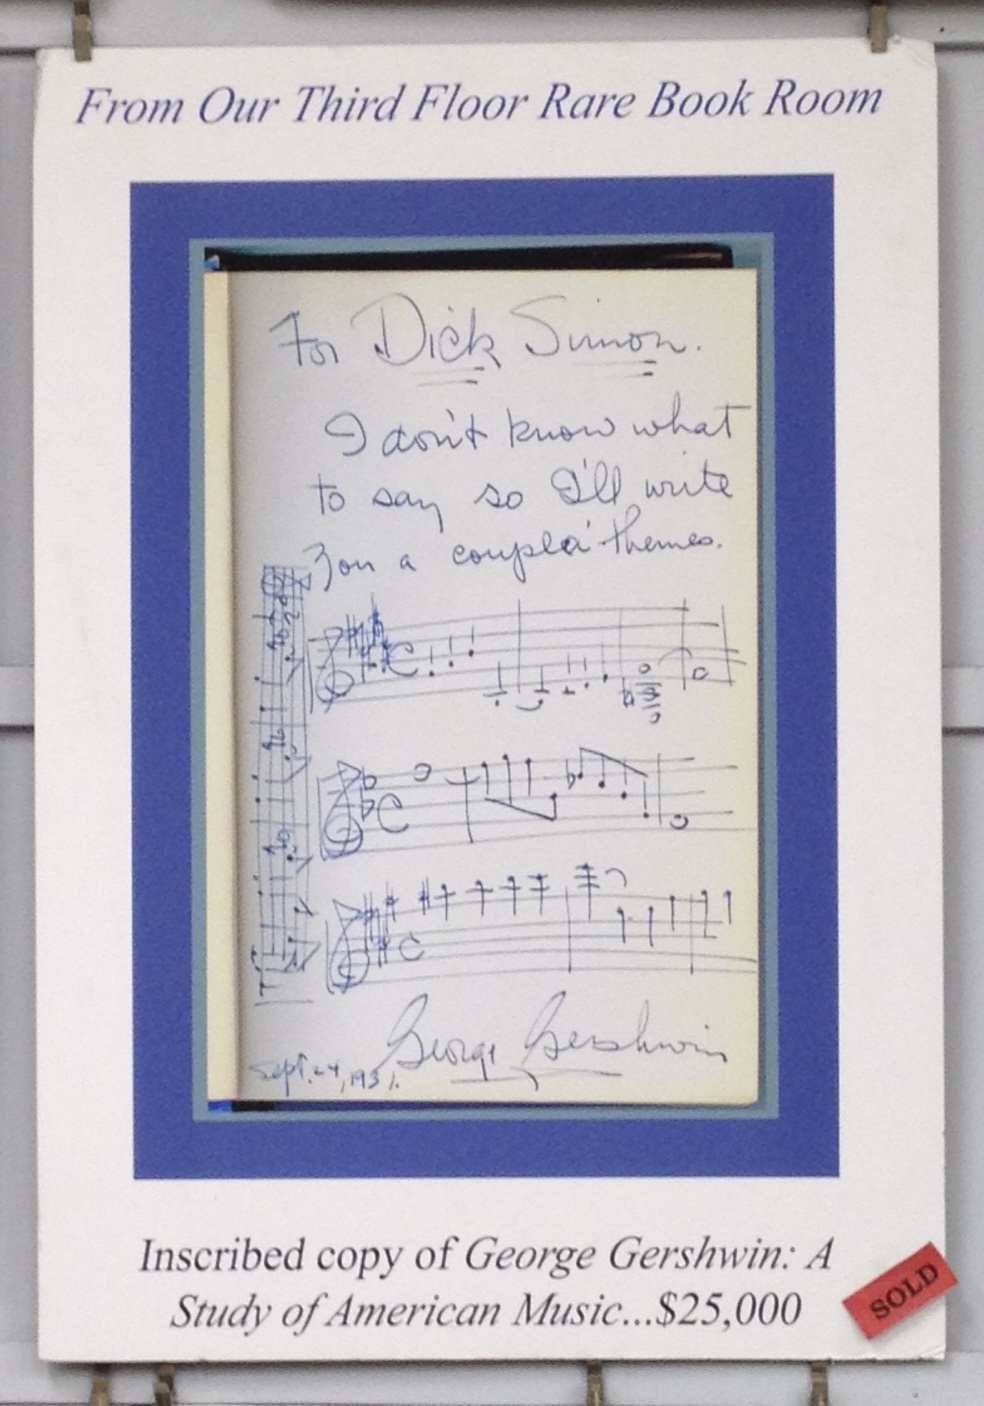 From Our Third Floor Rare Book Room
For Dick Simon.
I don't know what
to say so I'll write
you a coupla' themes.
George Gershwin
Sept. 24, 1931.
Inscribed copy of George Gershwin: A
Study of American Music...$25,000
SOLD